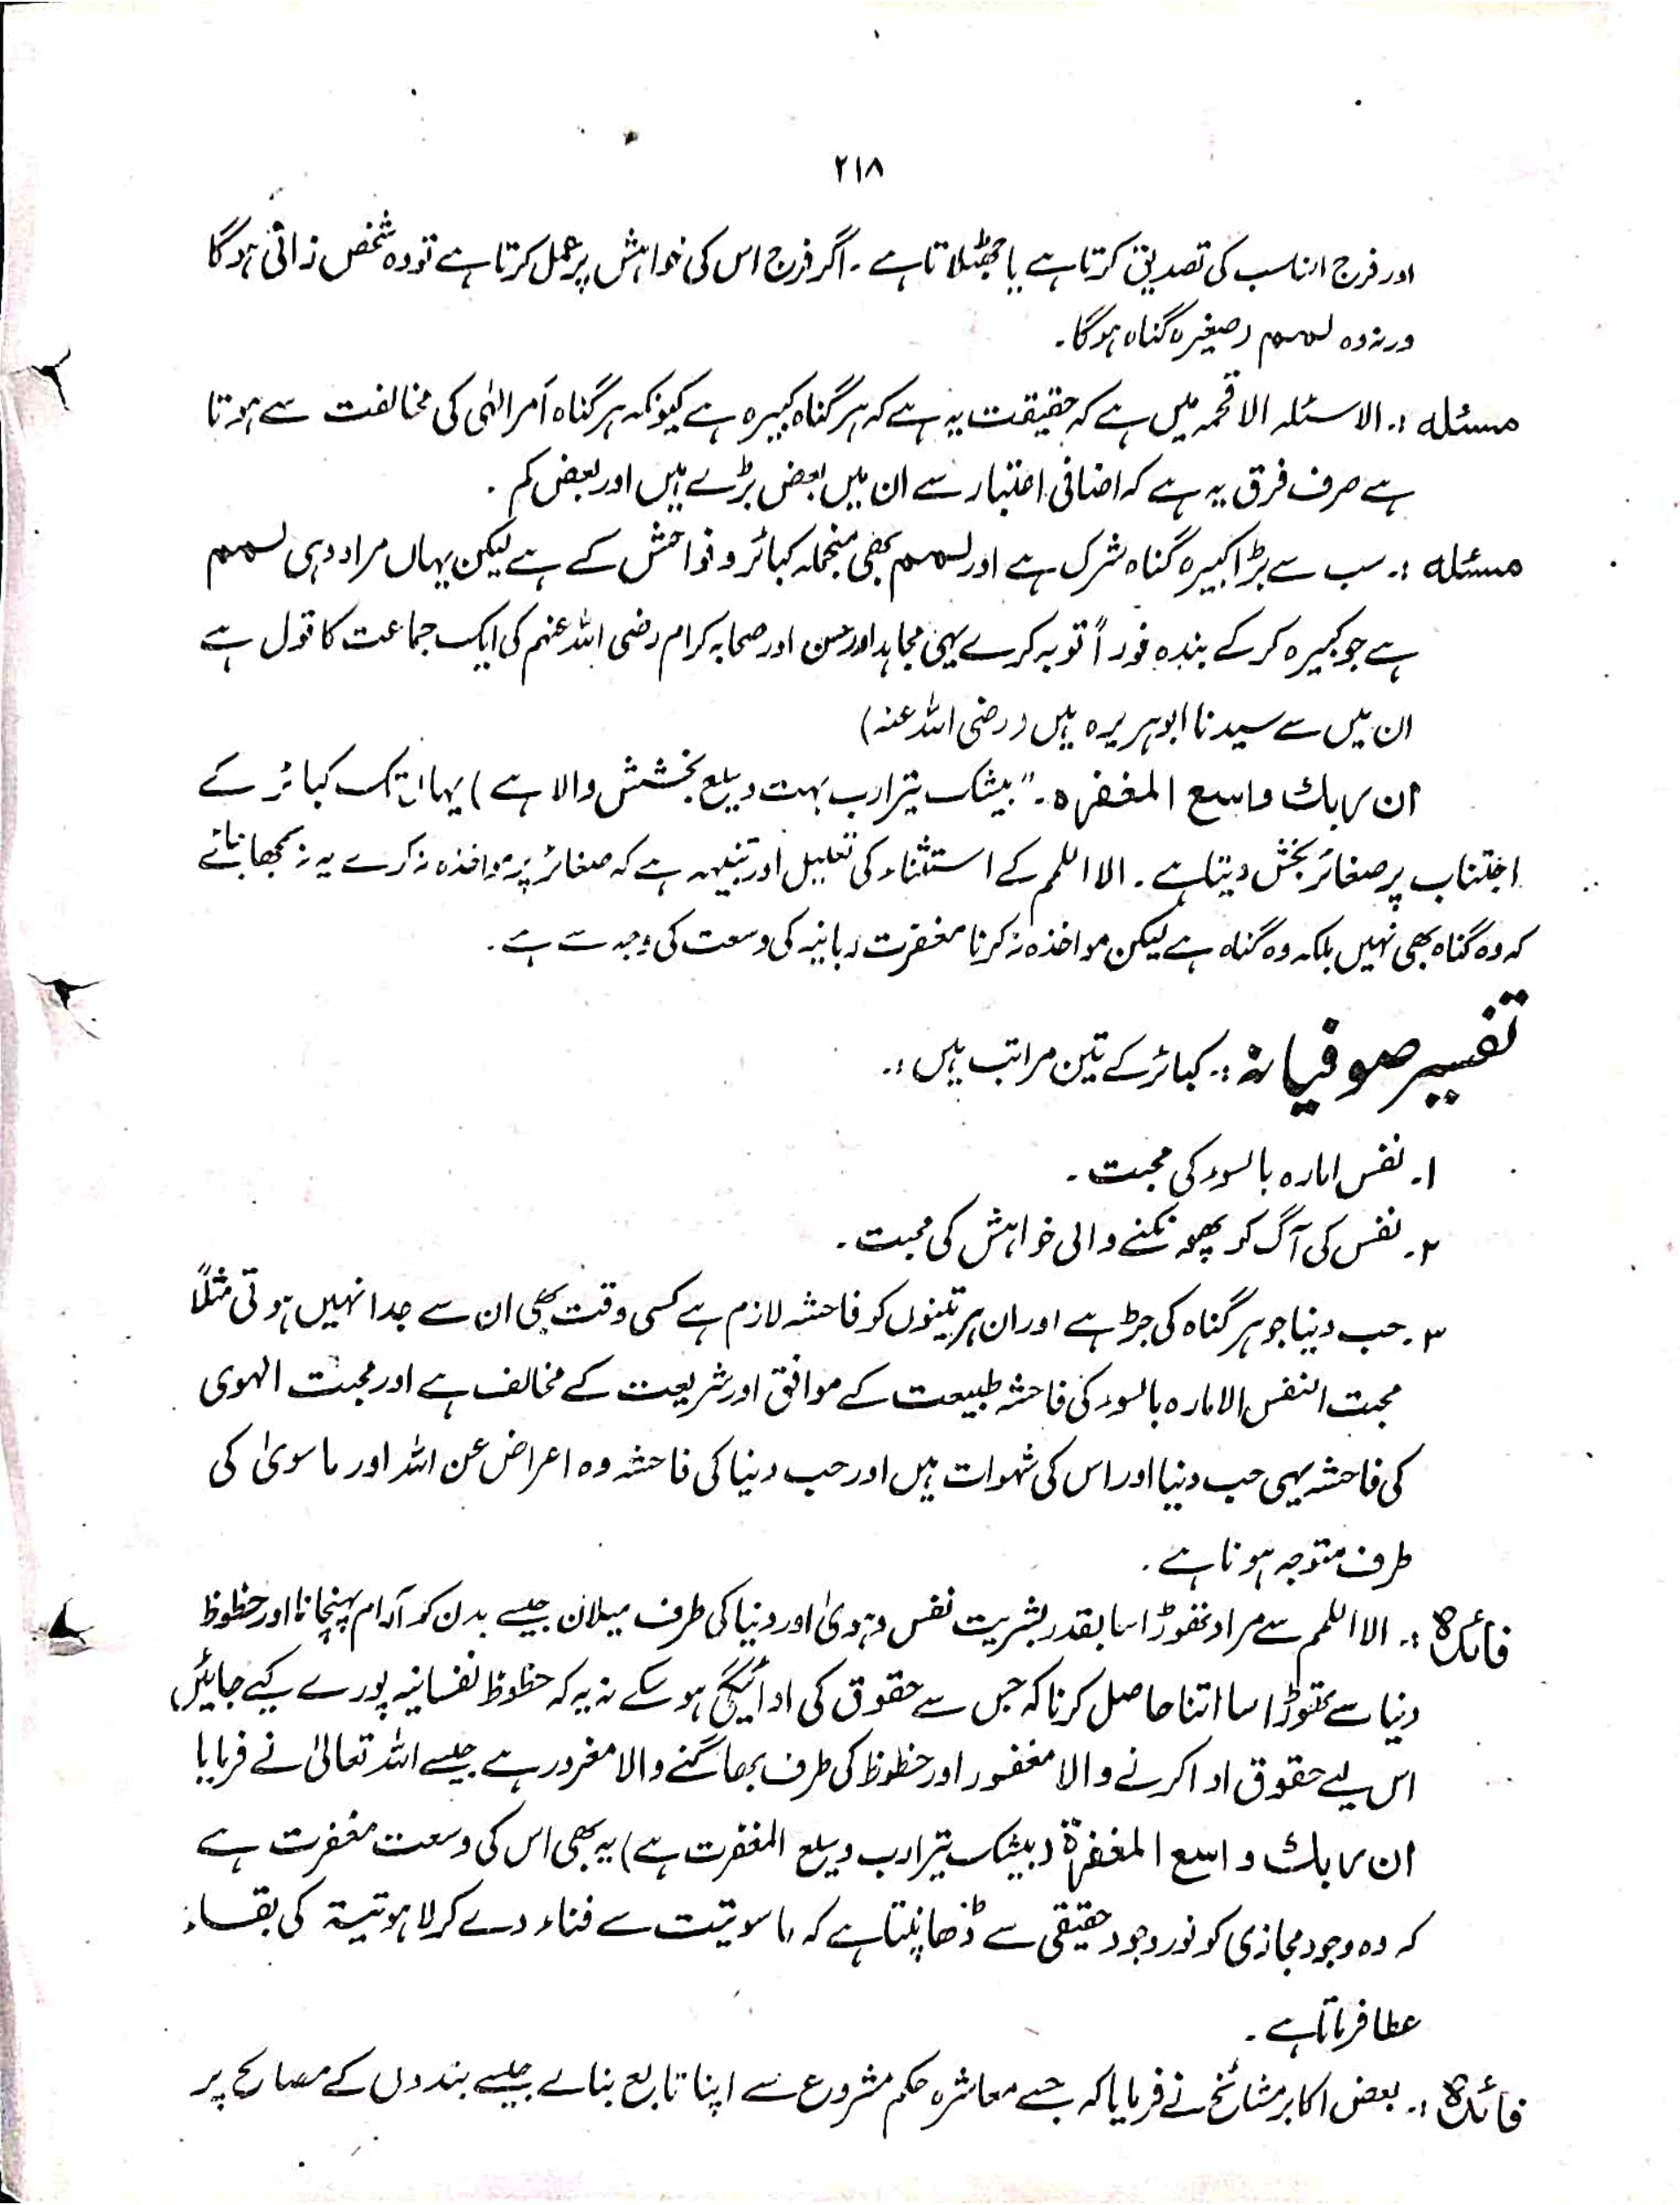 ۲۱۸
اور فرج ان سب کی تصدیق کرتا ہے یا جھٹلاتا ہے ۔ اگر فرج اس کی خواہش پر عمل کرتا ہے تو وہ شخص زانی ہوگا
ورنہ وہ لمم (صغیرہ گناہ ہوگا۔
مسئلہ :۔ الاسئلہ الاقحمہ میں ہے کہ حقیقت یہ ہے کہ ہر گناہ کبیرہ ہے کیونکہ ہر گناہ اَمر الٰہی کی مخالفت سے ہوتا
ہے صرف فرق یہ ہے کہ اضافی اعتبار سے ان میں بعض بڑے ہیں اور بعض کم ۔
مسئلہ :۔ سب سے بڑا کبیرہ گناہ شرک ہے اور لمم بھی منجملہ کبائر و فواحش کے ہے لیکن یہاں مراد وہی لمم
ہے جو کبیرہ کر کے بندہ فوراً توبہ کرے یہی مجاہد اور حسن اور صحابہ کرام رضی اللہ عنہم کی ایک جماعت کا قول ہے
ان میں سے سیدنا ابوہریرہ ہیں (رضی اللہ عنہ)
ان ربک واسع المغفرہ ۔" بیشک تیرا رب بہت وسیع بخشش والا ہے ) یہاں تک کبائر کے
اجتناب پر صغائر بخش دیتا ہے ۔ الا اللمم کے استثناء کی تعلیل اور تنبیہہ ہے کہ صغائر پر مواخذہ نہ کرے یہ نہ سمجھا جائے
کہ وہ گناہ بھی نہیں بلکہ وہ گناہ ہے لیکن مواخذہ نہ کرنا مغفرت ربانیہ کی وسعت کی وجہ سے ہے ۔
تفسیر صوفیانہ :۔ کبائر کے تین مراتب ہیں :۔
۱۔ نفس امارہ بالسوء کی محبت ۔
۲۔ نفس کی آگ کو پھونکنے والی خواہش کی محبت ۔
۳۔ حب دنیا جو ہر گناہ کی جڑ ہے اور ان ہر تینوں کو فاحشہ لازم ہے کسی وقت بھی ان سے جدا نہیں ہوتی مثلاً
محبت النفس الامارہ بالسوء کی فاحشہ طبیعت کے موافق اور شریعت کے مخالف ہے اور محبت الہوی
کی فاحشہ یہی حب دنیا اور اس کی شہوات ہیں اور حب دنیا کی فاحشہ وہ اعراض عن اللہ اور ماسویٰ کی
طرف متوجہ ہونا ہے ۔
فائدہ :۔ الا اللمم سے مراد تھوڑا سا بقدر بشریت نفس و ہویٰ اور دنیا کی طرف میلان جیسے بدن کو آرام پہنچانا اور حظوظ
دنیا سے تھوڑا سا اتنا حاصل کرنا کہ جس سے حقوق کی ادائیگی ہو سکے نہ یہ کہ حظوظ نفسانیہ پورے کیے جائیں
اس لیے حقوق ادا کرنے والا مغفور اور حظوظ کی طرف بھاگنے والا مغرور ہے جیسے اللہ تعالیٰ نے فرمایا
ان ربک واسع المغفرة (بیشک تیرا رب وسیع المغفرت ہے) یہ بھی اس کی وسعت مغفرت ہے
کہ وہ وجود مجازی کو نور وجود حقیقی سے ڈھانپتا ہے کہ ماسوئیت سے فناء دے کر لاہوتیۃ کی بقاء
عطا فرماتا ہے ۔
فائدہ :۔ بعض اکابر مشائخ نے فرمایا کہ جسے معاشرہ حکم مشروع سے اپنا تابع بنالے جیسے بندوں کے مصالح پر